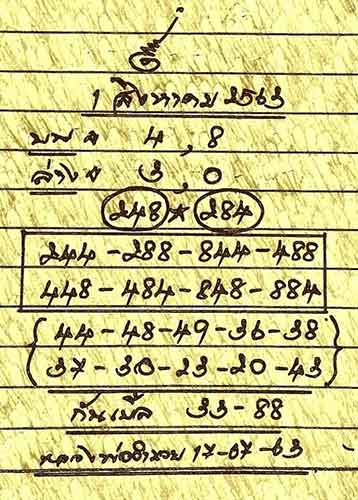 1 สิงหาคม 2563
บน ๑ 4, 8
ล่าง ๑ 3, 0
248 * 284
244 - 288 - 844 - 488
448 - 484 - 848 - 884
44 - 48 - 49 - 36 - 38
37 - 30 - 23 - 20 - 43
กันเบิ้ล 33 - 88
หลวงพ่ออำนวย 17-07-63